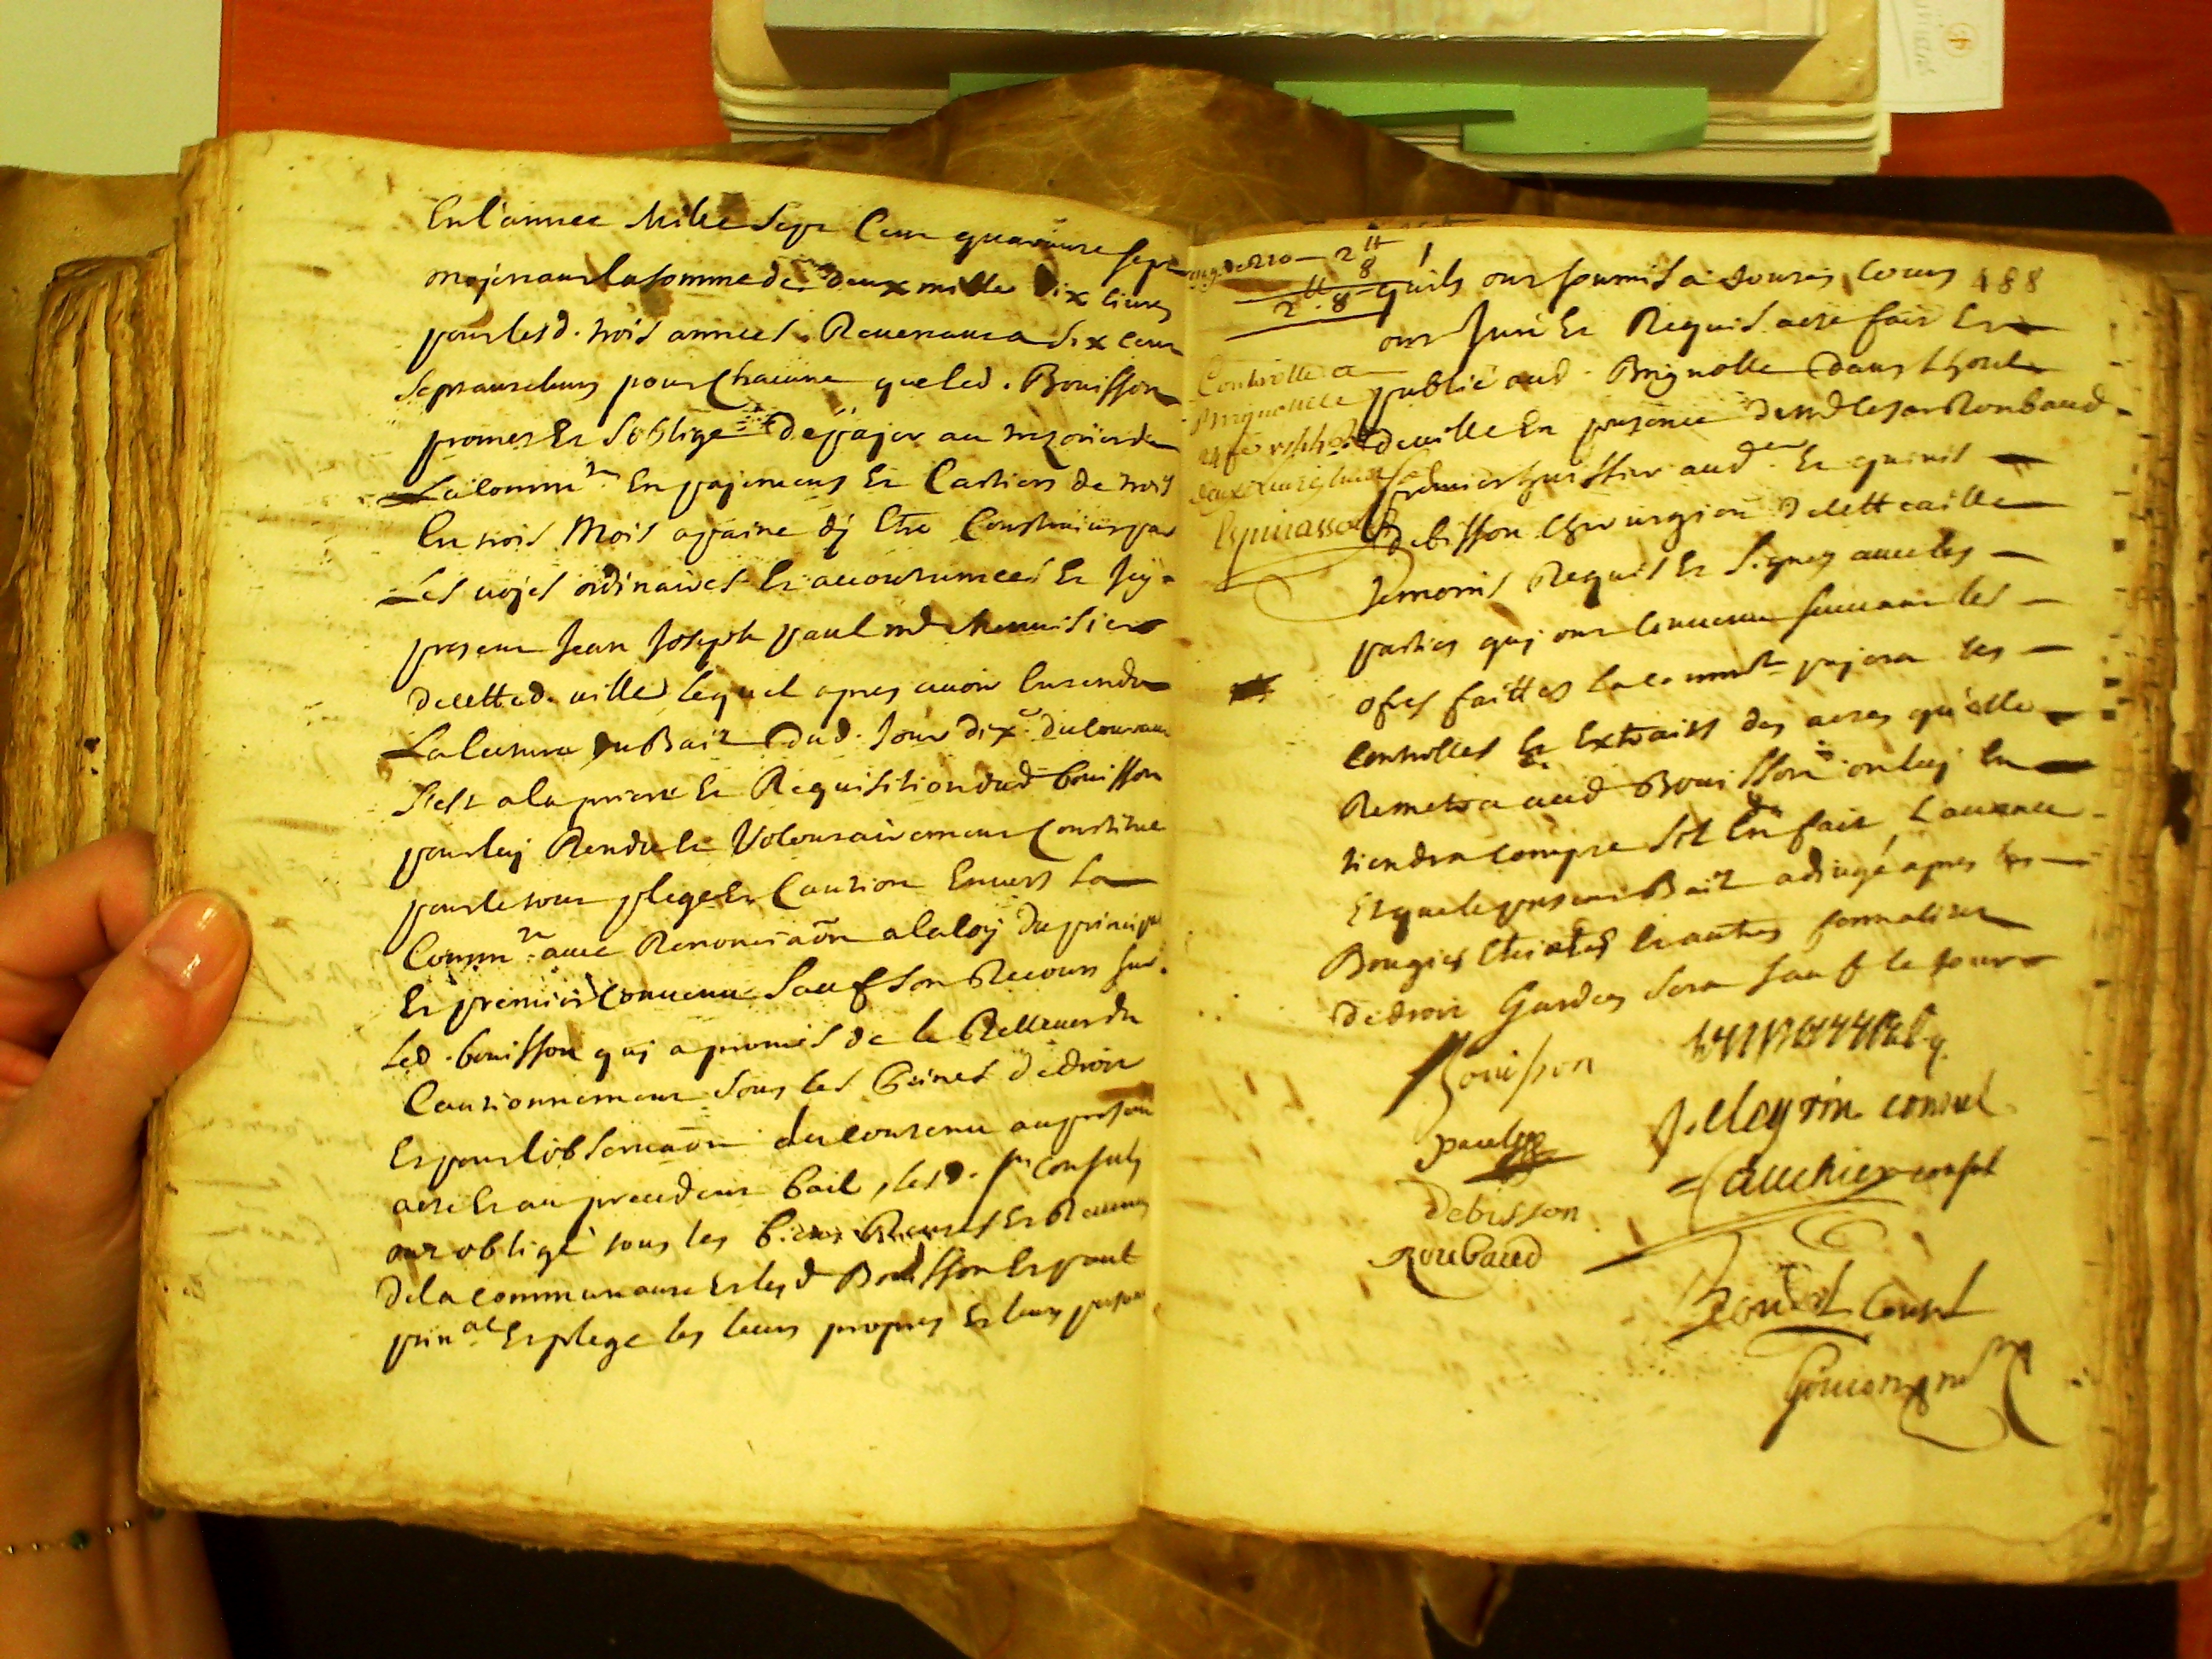 En l'annee Mille Sept Cent quarante sept
mojenant la somme de deux mille dix livres
pour lesd. trois années Revenant a Six cent
Septante livres pour Chacune que led. Bouisson
promet Et S'oblige de pajer au tresorier de
La Comm.té En pajements Et Cartiers de trois
En trois Mois a paine dy Etre Constraint par
Les vojes ordinaires Et accoutumées Et Icy
present Jean Joseph paul md Menuisier
de cette d. ville lequel apres avoir Entendu
La lecture du Bail dud. Jour dix.e du Courant
S'est a la priere Et Requisition dud bouisson
pour luy Rendu Et Volontairement Constitué
pour le tout plege Et Caution Envers La
Comm.té avec Renonciaõn a la loy du principal
Et premier Convenu Sauf Son Recours sur
Led. bouisson quy a promis de le Rellever du
Cautionnement Sous les peines de droit
Et pour l'observaõn du Contenu au present
acte Et au precedent bail, lesd. Srs Consuls
ont obligé tous les biens Rentes Et Revenus
de la communauté Et lesd Bouisson Et paul
prin.al Et plege les leurs propres Et leurs
2 tt 8
2 tt 8
quils ont soumis a toutes Cours 488
ont Juré Et Requis acte fait Et
publié aud. Brignolle dans Lhotel
de ville En presence de Roubaud
premier huissier aud. Et
debisson Chirurgien de cette ville
Temoins Requis Et Signes avec les
parties quy ont Convenu suivant les
ofres faittes la comm.té pajera les
Controlles Et Extraits des actes qu'elle
Remetra aud Bouisson ou luy En
tiendra compte S'il En fait L'avance
Et que le present Bail adjugé apres les
Bougies Eteintes Et autres formalites
de droit Gardees Sera sauf le tout
Controllé a
Brignolle
Espinassolles
Bouisson
paul
Debisson
Roubaud
pelegrin consul
Fauchier consul
Consul